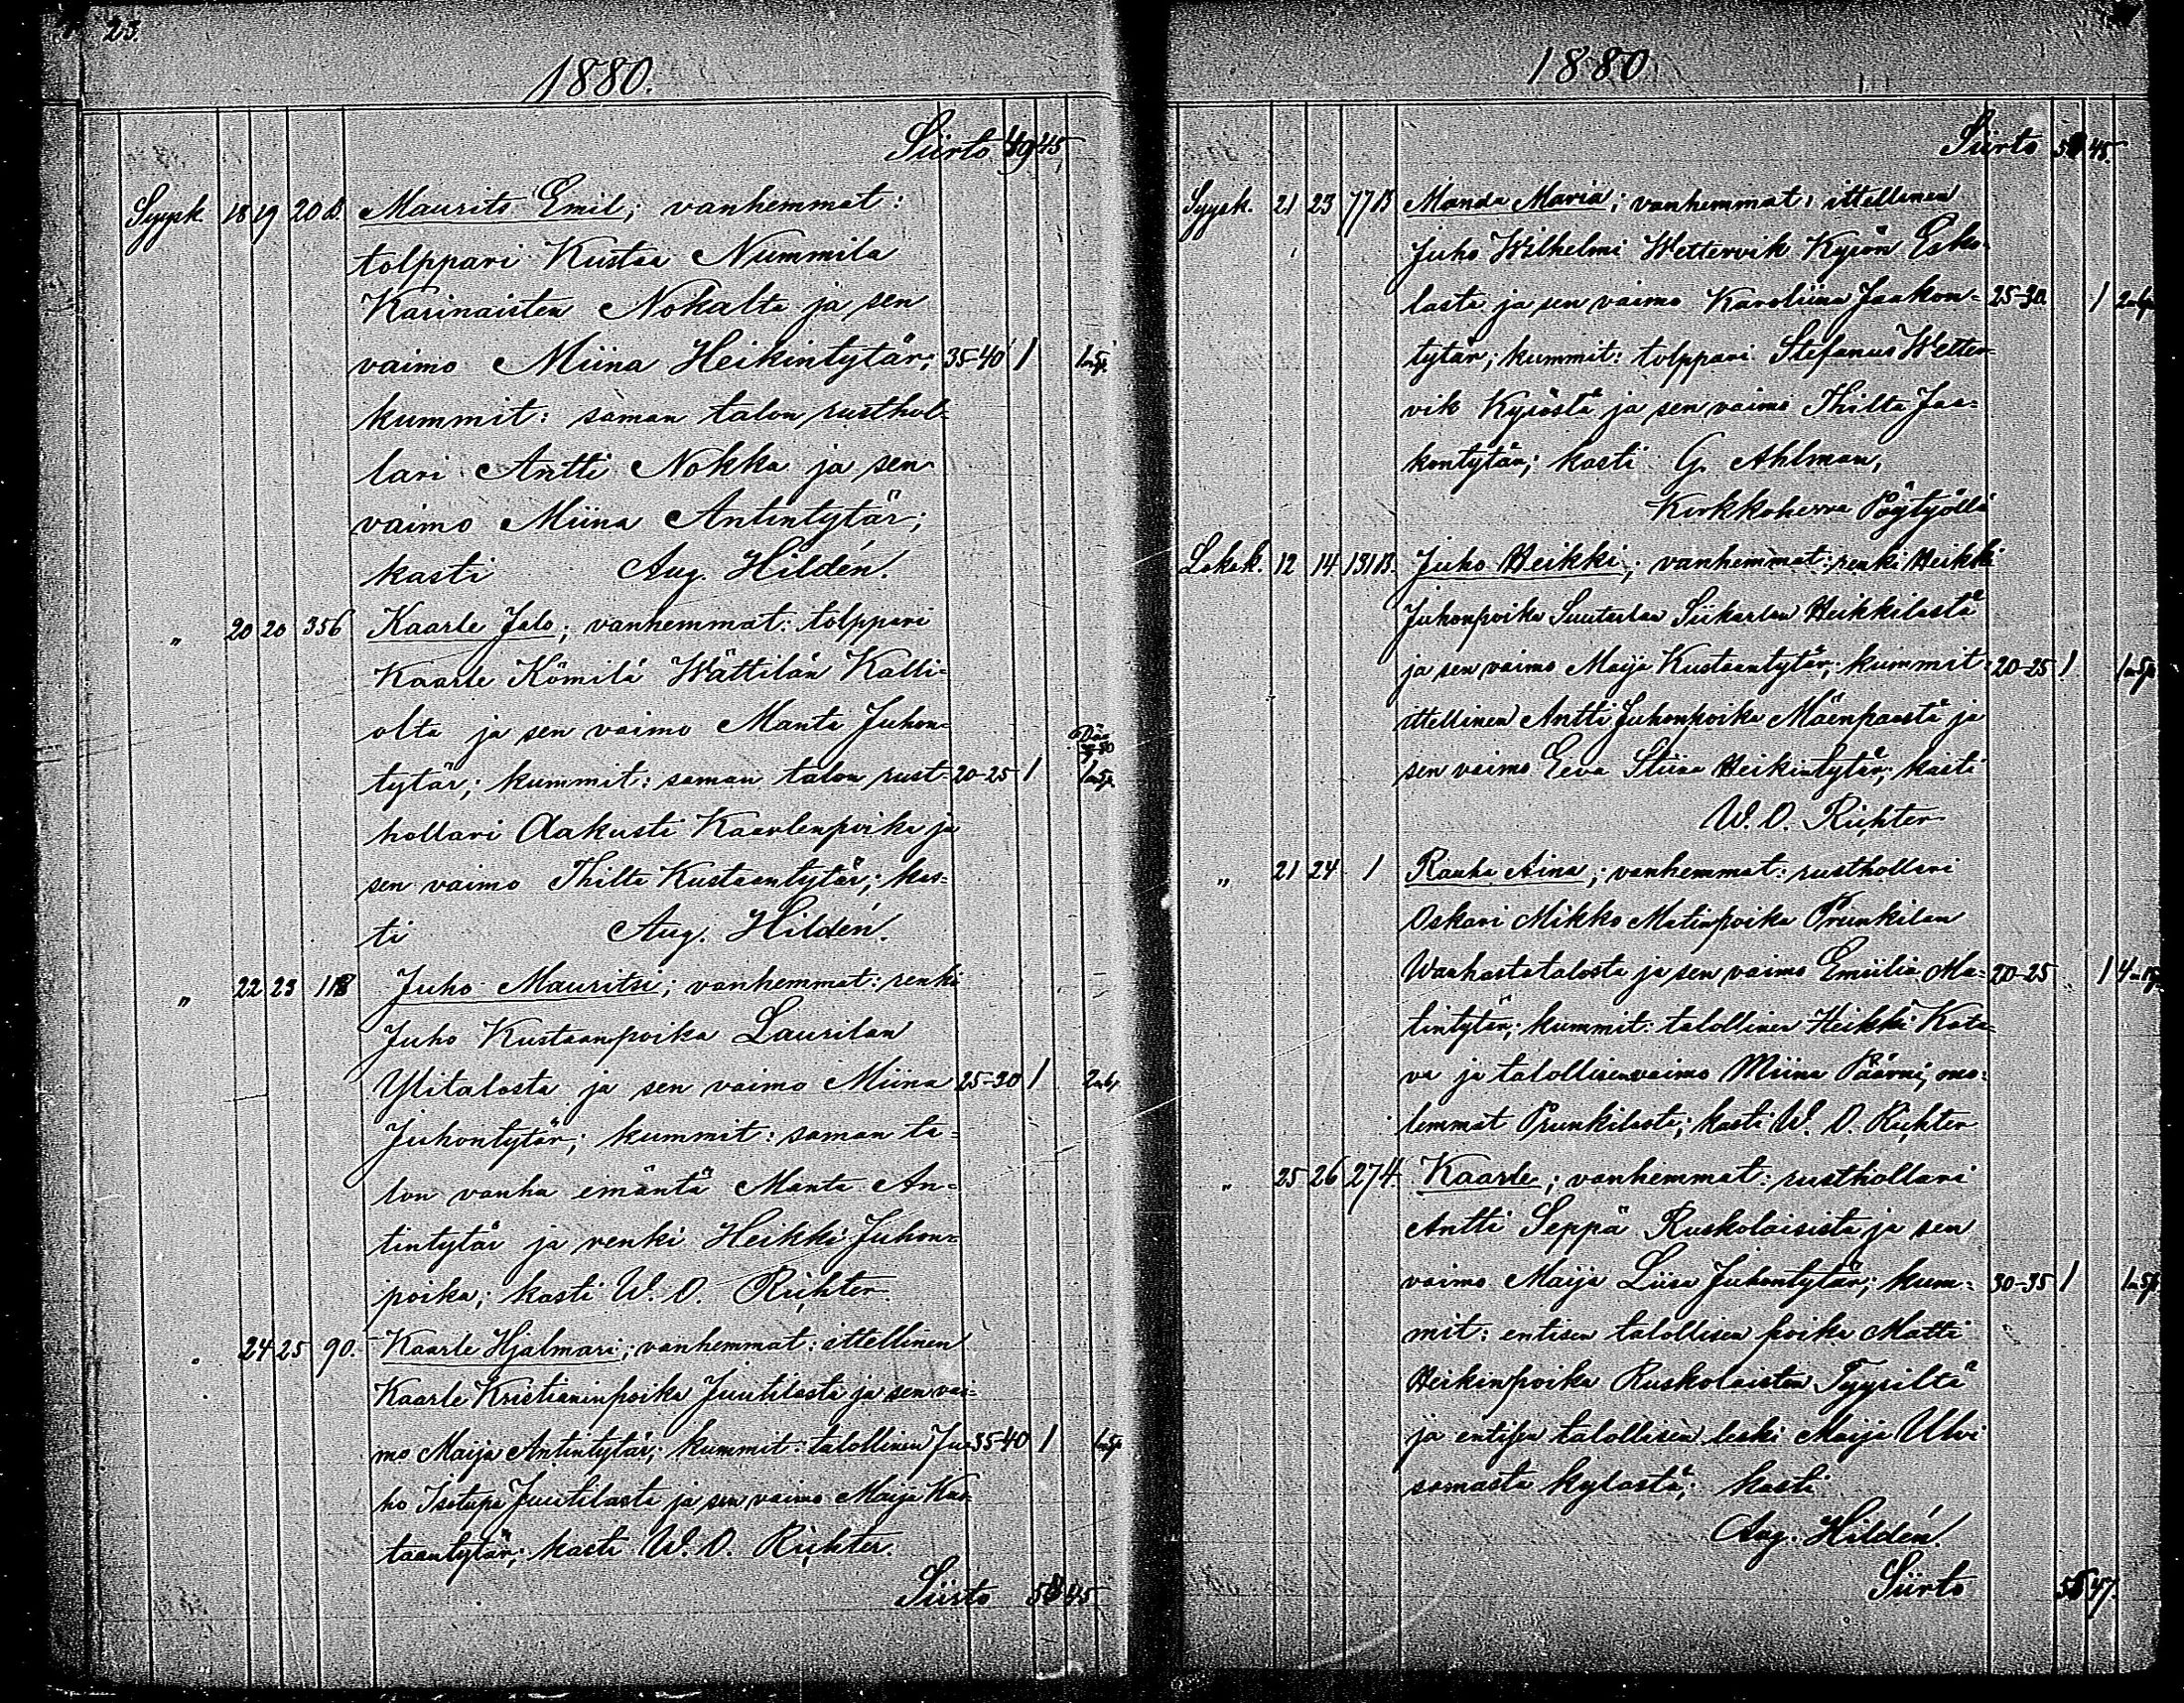 23.
1880.
Siirto 45
Syysk. 18 19 20 B. Maurits Emil; vanhemmat:
tolppari Kustaa Nummila
Karinaisten Nokalta ja sen
vaimo Miina Heikintytär; 35-40 1
kummit: saman talon rusthol-
lari Antti Nokka ja sen
vaimo Miina Antintytär;
kasti Aug. Hildén.
" 20 20 356 Kaarle Jalo; vanhemmat: tolppari
Kaarle Kömilä Wättilän Kalli-
olta ja sen vaimo Manta Juhon-
tytär; kummit: saman talon rust- 20-25 1
hollari Aakusti Kaarlenpoika ja
sen vaimo Thilta Kustaantytär; kas-
ti Aug. Hildén.
" 22 23 Juho Mauritsi; vanhemmat: renki
Juho Kustaanpoika Laurilan
Ylitalosta ja sen vaimo Miina 25-30 1
Juhontytär; kummit: saman ta-
lon vanha emäntä Manta An-
tintytär ja renki Heikki Juhon-
poika; kasti W. O. Richter.
" 24 25 90. Kaarle Hjalmari; vanhemmat: ittellinen
Kaarle Kristianinpoika Juutilasta ja sen vai-
mo Maija Antintytär; kummit: talollinen Ju- 35-40 1
ho Isotupa Juutilasta ja sen vaimo Maija Kus-
taantytär; kasti W. O. Richter.
Siirto 45
1880
Siirto 45.
Syysk. 21 23 77 B Manda Maria; vanhemmat: ittellinen
Juho Wilhelmi Wettervik Kyrön Esko-
lasta ja sen vaimo Karoliina Jaakon- 25-30 1
tytär; kummit: tolppari Stefanus Wetter-
vik Kyröstä ja sen vaimo Thilta Jaa-
kontytär; kasti G. Ahlman,
Kirkkoherra Pöytyällä
Lokak. 12 14 131 B. Juho Heikki; vanhemmat: renki Heikki
Juhonpoika Suutarlan Siikarlan Heikkilästä
ja sen vaimo Maija Kustaantytär; kummit: 20-25 1
ittellinen Antti Juhonpoika Mäenpäästä ja
sen vaimo Eeva Stiina Heikintytär; kasti
W. O. Richter
" 21 24 1 Rauha Aina; vanhemmat: rusthollari
Oskari Mikko Matinpoika Prunkilan
Wanhastatalosta ja sen vaimo Emiilia Ma- 20-25 1
tintytär; kummit: talollinen Heikki Kata-
va ja talollisenvaimo Miina Päärni, mo-
lemmat Prunkilasta; kasti W. O. Richter
" 25 26 274. Kaarle; vanhemmat: rusthollari
Antti Seppä Ruskolaisista ja sen
vaimo Maija Liisa Juhontytär; kum- 30-35 1
mit: entisen talollisen poika Matti
Heikinpoika Ruskolaisten Tyyriltä
ja entisen talollisen leski Maija Ulvi
samasta kylästä; kasti
Aug. Hildén.
Siirto 47.